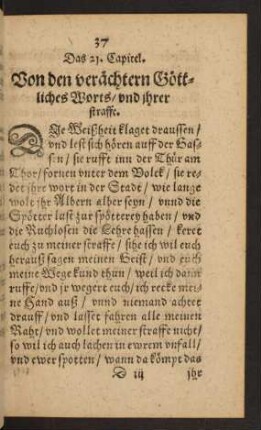 37
Das 23. Capitel.
Von den verächtern Gött-
liches Worts/ vnd jhrer
straffe.
DJe Weißheit klaget draussen/
vnd lest sich hören auff der Gas-
sen/ sie rufft inn der Thür am
Thor/ fornen vnter dem Volck/ sie re-
det jhre wort in der Stadt/ wie lange
wolt jhr Albern alber seyn/ vnnd die
Spötter lust zur spötterey haben/ vnd
die Ruchlosen die Lehre hassen/ keret
euch zu meiner straffe/ sihe ich wil euch
herauß sagen meinen Geist/ vnd euch
meine Wege kund thun/ weil ich dann
ruffe/ vnd jr wegert euch/ ich recke mei-
ne Hand auß/ vnnd niemand achtet
drauff/ vnd lasset fahren alle meinen
Raht/ vnd wollet meiner straffe nicht/
so wil ich auch lachen in ewrem vnfall/
vnd ewer spotten/ wann da kömpt das
D iij jhr